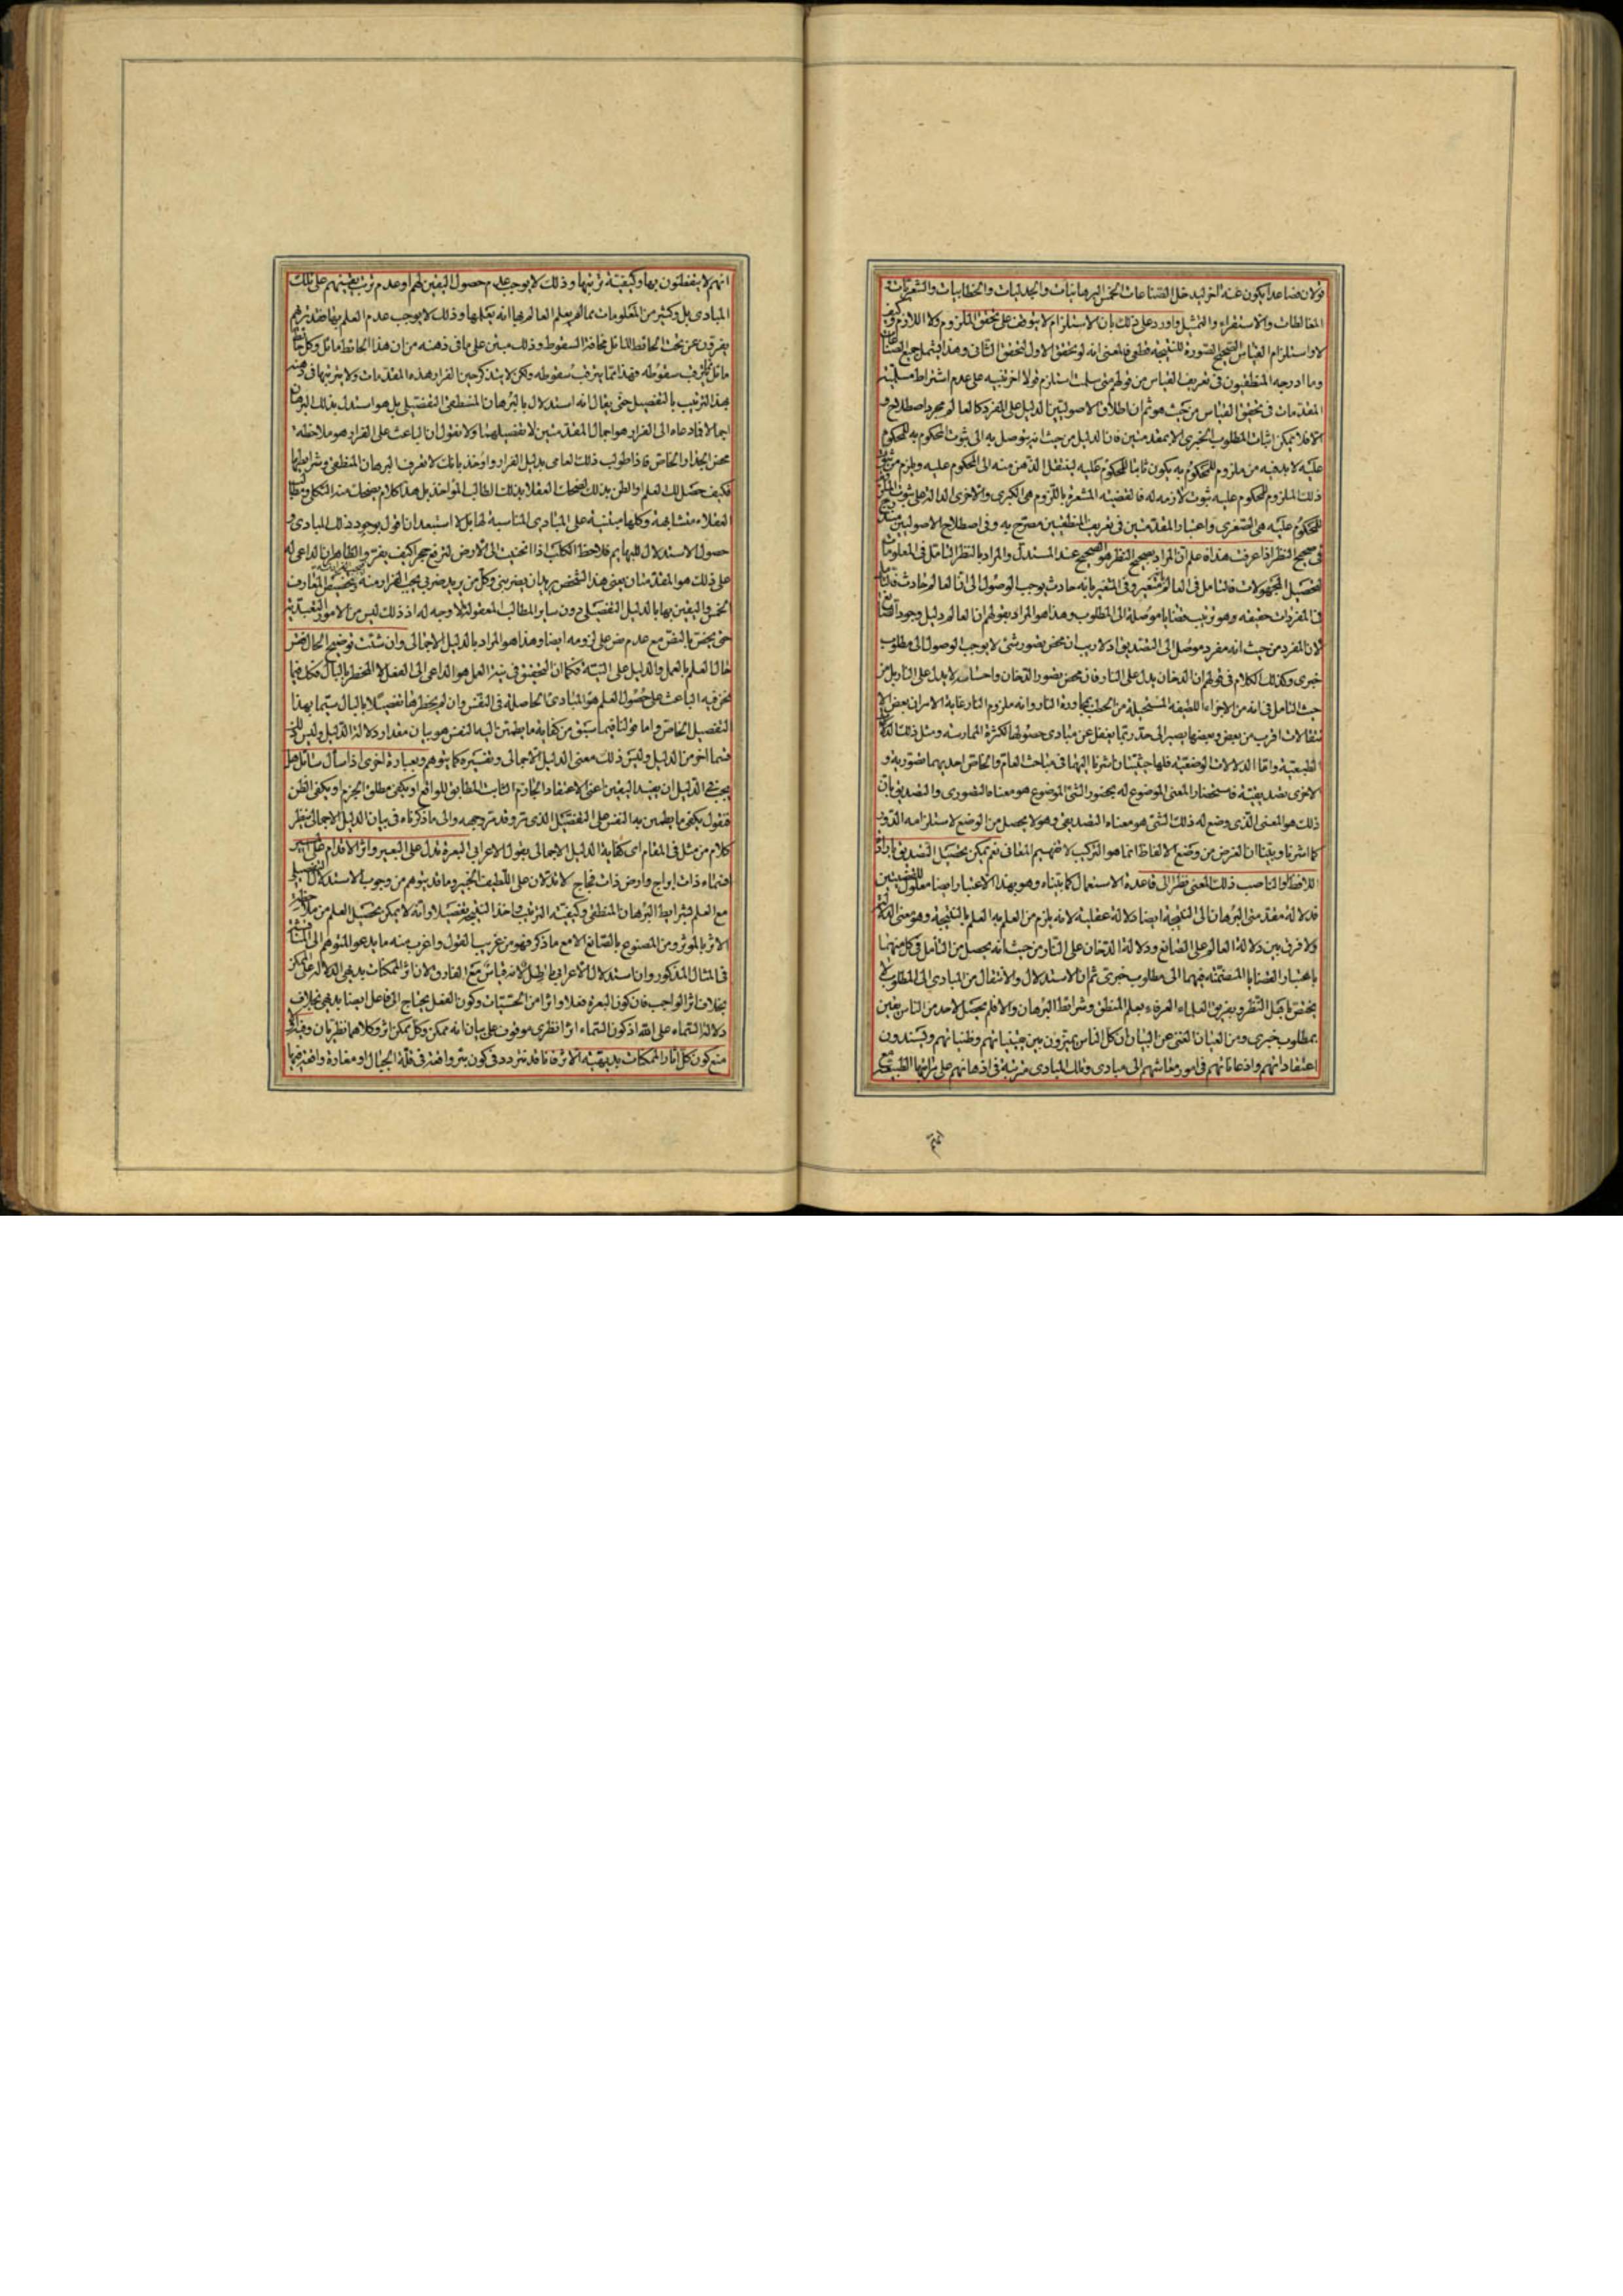 قولان فصاعدا يكون عنه اخر ليدخل الصناعات الخمس البرهانيات والجدليات والخطابيات والشعريات
المغالطات والاستقراء والتمثيل واورد على ذلك بان الاستلزام لا يتوقف على تحقق الملزوم ولا اللازم وكيف
لا واستلزام القياس الصحيح الصورة للنتيجة قطعي فالمعنى انه لو تحقق الاول لتحقق الثاني وهذا يشمل جميع الصناعات
وما ادرجه المنطقيون في تعريف القياس من قولهم متى سلمت استلزم قولا اخر تنبيه على عدم اشتراط مسلمية
المقدمات في تحقق القياس من حيث هو ثم ان اطلاق الاصوليين الدليل على المفرد كالعالم مجرد اصطلاح و
الا فلا يمكن اثبات المطلوب الخبري الا بمقدمتين فان الدليل من حيث انه يتوصل به الى ثبوت المحكوم به للمحكوم
عليه لا بد فيه من ملزوم للمحكوم به يكون ثابتا للمحكوم عليه لينتقل الذهن منه الى المحكوم عليه ويلزم من ثبوت
ذلك الملزوم للمحكوم عليه ثبوت لازمه له فالقضية المشعرة باللزوم هي الكبرى والاخرى الدالة على ثبوت الملزوم
للمحكوم عليه هي الصغرى واعتبار المقدمتين في تعريف المنطقيين مصرح به وفي اصطلاح الاصوليين مندرج
في صحيح النظر اذا عرفت هذا فاعلم ان المراد بصحيح النظر هو الصحيح عند المستدل والمراد بالنظر التامل في المعلومات
لتحصيل المجهولات فالتامل في العالم المتغير وفي المتغير بانه حادث يوجب الوصول الى ان العالم حادث
في المفردات حقيقة وهو ترتيب قضايا موصلة الى المطلوب وهذا هو المراد بقولهم ان العالم دليل وجود الصانع
لان المفرد من حيث انه مفرد موصل الى التصديق اذ لا ريب ان محض تصور شئ لا يوجب الوصول الى مطلوب
خبري وكذلك الكلام في قولهم ان الدخان يدل على النار فان محض تصور الدخان واحساسه لا يدل على النار بل من
حيث التامل في انه من الاجزاء اللطيفة المستحيلة من الحطب بمجاورة النار وانه ملزوم النار غاية الامر ان بعض الا
نتقالات اقرب من بعض وبعضها يصير الى حد ربما يغفل عن مبادي حصولها لكثرة الممارسة ومثل ذلك الدلالة
الطبيعية واما الدلالات الوضعية فلها حيثيتان اشرنا اليهما في مباحث العام والخاص احديهما تصورية و
الاخرى تصديقية فاستحضار المعنى الموضوع له بحضور الشئ الموضوع هو معناه التصوري والتصديق بان
ذلك هو المعنى الذي وضع له ذلك الشئ هو معناه التصديقي وهو لا يحصل من الوضع لاستلزامه الدور
كما اشرنا وبينا ان الغرض من وضع الالفاظ انما هو التركيب لا تفهيم المعاني نعم يمكن تحصيل التصديق بارادة
اللافظ والناصب ذلك المعنى نظرا الى قاعدة الاستعمال كما بيناه وهو بهذا الاعتبار ايضا معلول القضيتين
فدلالة مقدمتي البرهان الى النتيجة ايضا دلالة عقلية لانه يلزم من العلم به العلم بالنتيجة وهو معنى الدلالة
ولا فرق بين دلالة العالم على الصانع ودلالة الدخان على النار من حيث انه يحصل من التامل في كل منهما
باعتبار القضايا المتضمنة فيهما الى مطلوب خبري ثم ان الاستدلال والانتقال من المبادي الى المطلوب لا
يختص باهل النظر وبفريق العلماء العرفاء بعلم المنطق وشرائط البرهان والا فلم يحصل لاحد من الناس يقين
بمطلوب خبري ومن العيان الغني عن البيان ان كل الناس يميزون بين يقينياتهم وظنياتهم ويسندون
اعتقاداتهم واذعاناتهم في امور معاشهم الى مبادي وتلك المبادي مرتبة في اذهانهم على نظامها الطبيعي
انهم لا يتفطنون بها وكيفية ترتيبها وذلك لا يوجب عدم حصول اليقين لهم او عدم ترتب يقينهم على تلك
المبادي بل وكثير من المعلومات مما لم يعلم العالم بها انه يعلمها وذلك لا يوجب عدم العلم بها فقد تريهم
يفرون عن تحت الحائط المائل مخافة السقوط وذلك مبتن على ما في ذهنه من ان هذا الحائط مائل وكل حائط
مائل يترقب سقوطه فهذا مما يترقب سقوطه ولكن لا يتذكر حين الفرار هذه المقدمات ولا يرتبها في ذهنه
بهذا الترتيب بالتفصيل حتى يقال انه استدلال بالبرهان المنطقي التفصيلي بل هو استدل بذلك البرهان
اجمالا فادعاه الى الفرار هو اجمال المقدمتين لا تفصيلهما ولا نقول ان الباعث على الفرار هو ملاحظة
محض الجدار الخاص فاذا طولب ذلك العامي بدليل الفرار واوخذ بانك لا تعرف البرهان المنطقي وشرايطها
فكيف حصل لك العلم او الظن بذلك لضحك العقلاء بذلك الطالب المؤاخذ بل هذا كلام يضحك منه الثكلى ومطالب
العقلاء متشابهة وكلها مبتنية على المبادي المناسبة لها بل لا استبعد ان اقول بوجود ذلك المبادي و
حصول الاستدلال للبهايم فلاحظ الكلب اذا انحنيت الى الارض لترفع حجرا كيف يفر والظاهر ان الداعي له
على ذلك هو المقدمتان يعني هذا الشخص يريد ان يضربني وكل من يريد ضربي يجب الفرار منه وتخصيص المعارف
الخمس واليقين بها بالدليل التفصيلي دون ساير المطالب المعقولة لا وجه له اذ ذلك ليس من الامور التعبدية
حتى يختص بالنص مع عدم نص على لزومه ايضا وهذا هو المراد بالدليل الاجمالي وان شئت توضيح الحال فقس
حال العلم بالعمل والدليل على النية فكما ان التحقيق في نية العمل هو الداعي الى الفعل لا المخطر بالبال فكك فيما
نحن فيه الباعث على حصول العلم هو المبادي الحاصلة في النفس وان لم يخطرها تفصيلا بالبال سيما بهذا
التفصيل الخاص واما قولنا فيما سبق من كفاية ما يطمئن اليه النفس هو بيان مقدار دلالة الدليل وليس
قسما اخر من الدليل وليس ذلك معنى الدليل الاجمالي وتفسيره كما يتوهم وبعبارة اخرى اذا سأل سائل هل
يجب في الدليل ان يفيد اليقين اعني الاعتقاد الجازم الثابت المطابق للواقع او يكفي مطلق الجزم او يكفي الظن
فنقول يكفي ما يطمئن به النفس على التفصيل الذي مر وقد ترجمه والى ما ذكرناه في بيان الدليل الاجمالي ينظر
كلام من مثل في المقام اي كفاية الدليل الاجمالي بقول الاعرابي البعرة تدل على البعير واثر الاقدام على المسير
افسماء ذات ابراج وارض ذات فجاج لا تدلان على اللطيف الخبير وما قد يتوهم من وجوب الاستدلال التفصيلي
مع العلم بشرايط البرهان المنطقي وكيفية الترتيب واخذ النتيجة تفصيلا وانه لا يمكن تحصيل العلم من ملاحظة
الاثر بالمؤثر ومن المصنوع بالصانع الا مع ما ذكر فهو من غريب القول واغرب منه ما يدعو المتوهم الى المناقشة
في المثال المذكور وان استدلال الاعرابي باطل لانه قياس مع الفارق لان اثر الممكنات بديهي الدلالة على الممكن
بخلاف اثر الواجب فان كون البعرة فعلا واثرا من الحسيات وكون الفعل يحتاج الى فاعل ايضا بديهي بخلاف
دلالة السماء على الله اذ كون السماء اثرا نظري موقوف على بيان انه ممكن وكل ممكن اثر وكلاهما نظريان وفيه
منع كون كل اثار الممكنات بديهية الاثر فانا قد نتردد في كون بئر واقعة في قلة الجبال او مغارة واقعة فيها